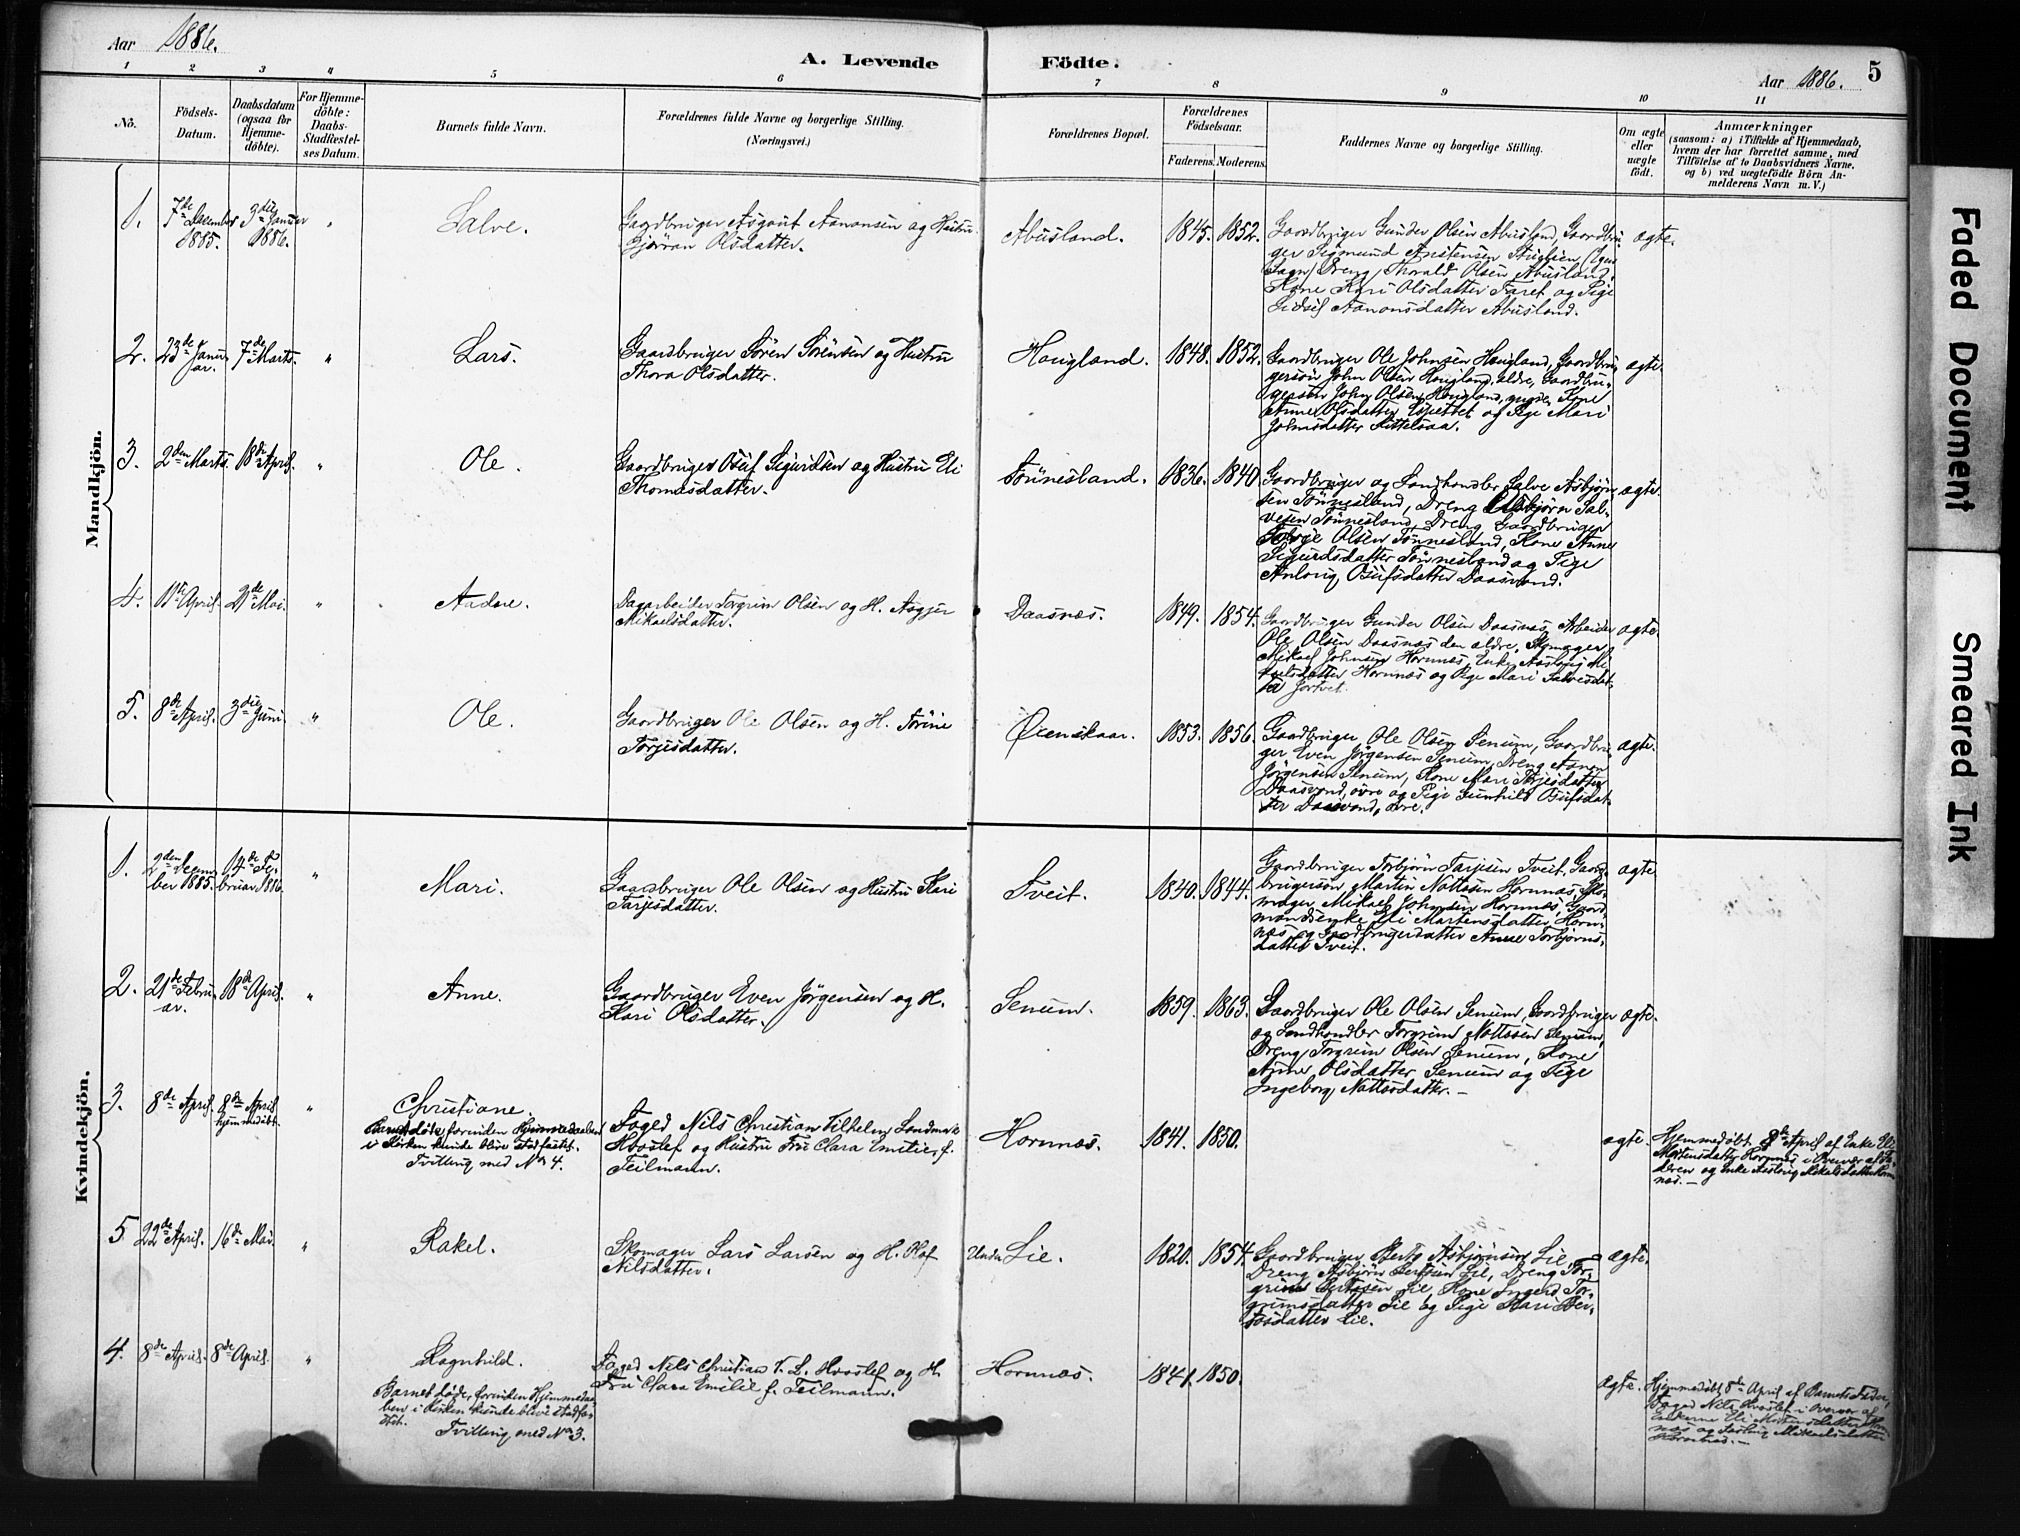 Aar 1886.
A. Levende Födte.
Aar 1886. 5
1 2 3 4 5 6 7 8 9 10 11
No.
Födsels-
Datum.
Daabsdatum
(ogsaa for
Hjemme-
döbte).
For Hjemme-
döbte:
Daabs-
Stadfæstel-
ses Datum.
Barnets fulde Navn.
Forældrenes fulde Navne og borgerlige Stilling.
(Næringsvei.)
Forældrenes Bopæl.
Forældrenes
Födselsaar.
Faderens. Moderens.
Faddernes Navne og borgerlige Stilling.
Om ægte
eller
uægte
födt.
Anmærkninger
(saasom: a) i Tilfælde af Hjemmedaab,
hvem der har forrettet samme, med
Tilföielse af to Daabsvidners Navne,
og b) ved uægtefödte Börn An-
melderens Navn m. V.)
Mandkjön.
1.
7de December
1885.
3die Januar
1886.
"
Salve.
Gaardbruger Asgout Aanonsen og Hustru
Gjøran Olsdatter.
Abusland.
1845. 1852.
Gaardbruger Gunder Olsen Abusland, Gaardbru-
ger Sigmund
Sogn) Dreng Thorald Olsen Abusland,
Kone Kari Olsdatter Faret og Pige
Aanonsdatter Abusland.
ægte.
2.
23de Janu-
ar.
7de Marts.
"
Lars.
Gaardbruger Sören Sörensen og Hustru
Thora Olsdatter.
Hougland.
1848. 1852.
Gaardbruger Ole Johnsen Hougland, Gaardbru-
gersön John Olsen Hougland, ældre, Gaardbru-
gersön John Olsen Hougland, yngre, Kone
Anne Olsdatter og Pige Mari
Johnsdatter Kittelsaa.
ægte.
3.
2den Marts.
18de April.
"
Ole.
Gaardbruger Osuf Sigurdsen og Hustru Eli
Thomasdatter.
Tönnesland.
1836. 1840
Gaardbruger og Landhandler Salve Asbjörn-
sen Tönnesland, Dreng Asbjörn Sal-
vesen Tönnesland, Dreng Gaardbruger
Olsen Tönnesland, Kone Anne
Sigurdsdatter Tönnesland og Pige
Osufsdatter Daasvand.
ægte.
4.
April.
2den Mai.
"
Aadne.
Dagarbeider Torgrim Olsen og H. Asgjer
Mikaelsdatter.
Daasnæs.
1849. 1854.
Gaardbruger Gunder Olsen Daasnæs, Arbeider
Ole Olsen Daasnæs den ældre, Skomager
Mikael Johnsen Hornnæs, Enke Aaslaug Mi-
kaelsdatter Hornnæs og Pige Mari Salvesdat-
ter
ægte.
5.
8de April.
3die Juni.
"
Ole.
Gaardbruger Ole Olsen og H. Torine
Torjesdatter.
Øienskaar.
1853. 1856.
Gaardbruger Ole Olsen Senum, Gaardbru-
ger Even Jörgensen Senum, Dreng Aanon
Jörgensen Senum, Kone Mari Torjesdatter
Daasvand, övre og Pige Gunhild Osufsdat-
ter Daasvand, övre.
ægte.
Kvindekjön.
1.
2den Decem-
ber 1885.
14de Fe-
bruar 1886.
"
Mari.
Gaardbruger Ole Olsen og Hustru Kari
Tarjesdatter.
Tveit.
1840. 1844.
Gaardbruger Torbjörn Tarjesen Tveit, Gaard-
brugersön Martin Nottosen Hornnæs, Sko-
mager Mikael Johnsen Hornnæs, Gaard-
mandsenke Eli Martensdatter Horn-
næs og Gaardbrugerdatter Anne Torbjörns-
datter Tveit.
ægte.
2.
21de Febru-
ar.
18de April.
"
Anne.
Gaardbruger Even Jörgensen og H.
Kari Olsdatter.
Senum.
1859. 1863.
Gaardbruger Ole Olsen Senum, Gaardbruger
og Landhandler Torgrim Nottosen Senum,
Dreng Torgrim Olsen Senum, Kone
Anne Olsdatter Senum og Pige
Ingeborg Nottosdatter.
ægte.
3.
8de April.
8de April
hjemmedöbt.
"
Christiane.
Barnet döde forinden Hjemmedaaben
i Kirken kunde blive stadfæstet.
Tvilling med No 4.
Foged Nils Christian Vilhelm Landmark
Hvoslef og Hustru Fru Clara Emilie, f.
Teilmann.
Hornnæs.
1841. 1850.
ægte.
Hjemmedöbt 8de April af Enke Eli
Mortensdatter Hornnæs i Overvær af Fa-
deren og Enke Aaslaug Mikalsdatter Horn-
næs.
5
22de April.
16de Mai.
"
Rakel.
Skomager Lars Larsen og H.
Nilsdatter.
Under Lie.
1820. 1854.
Gaardbruger Berte Asbjörnsen Lie,
Dreng Asbjörn Bertsen Lie, Dreng Tor-
grim Bertesen Lie, Kone Ingerd Tor-
grimsdatter Lie og Pige Kari Ber-
tosdatter Lie.
ægte.
4.
8de April.
8de April.
"
Ragnhild.
Barnet döde, forinden Hjemmedaa-
ben i Kirken kunde blive stadfæs-
tet.
Tvilling med No 3.
Foged Nils Christian V. L. Hvoslef og H.
Fru Clara Emilie f. Teilmann.
Hornnæs.
1841. 1850.
ægte.
Hjemmedöbt 8de April af Barnets Fader,
Foged Nils Hvoslef i Overvær af
Enkerne Eli Mortensdatter Horn-
næs og Aaslaug Mikaelsdatter
Hornnæs.
Faded Document
Smeared Ink